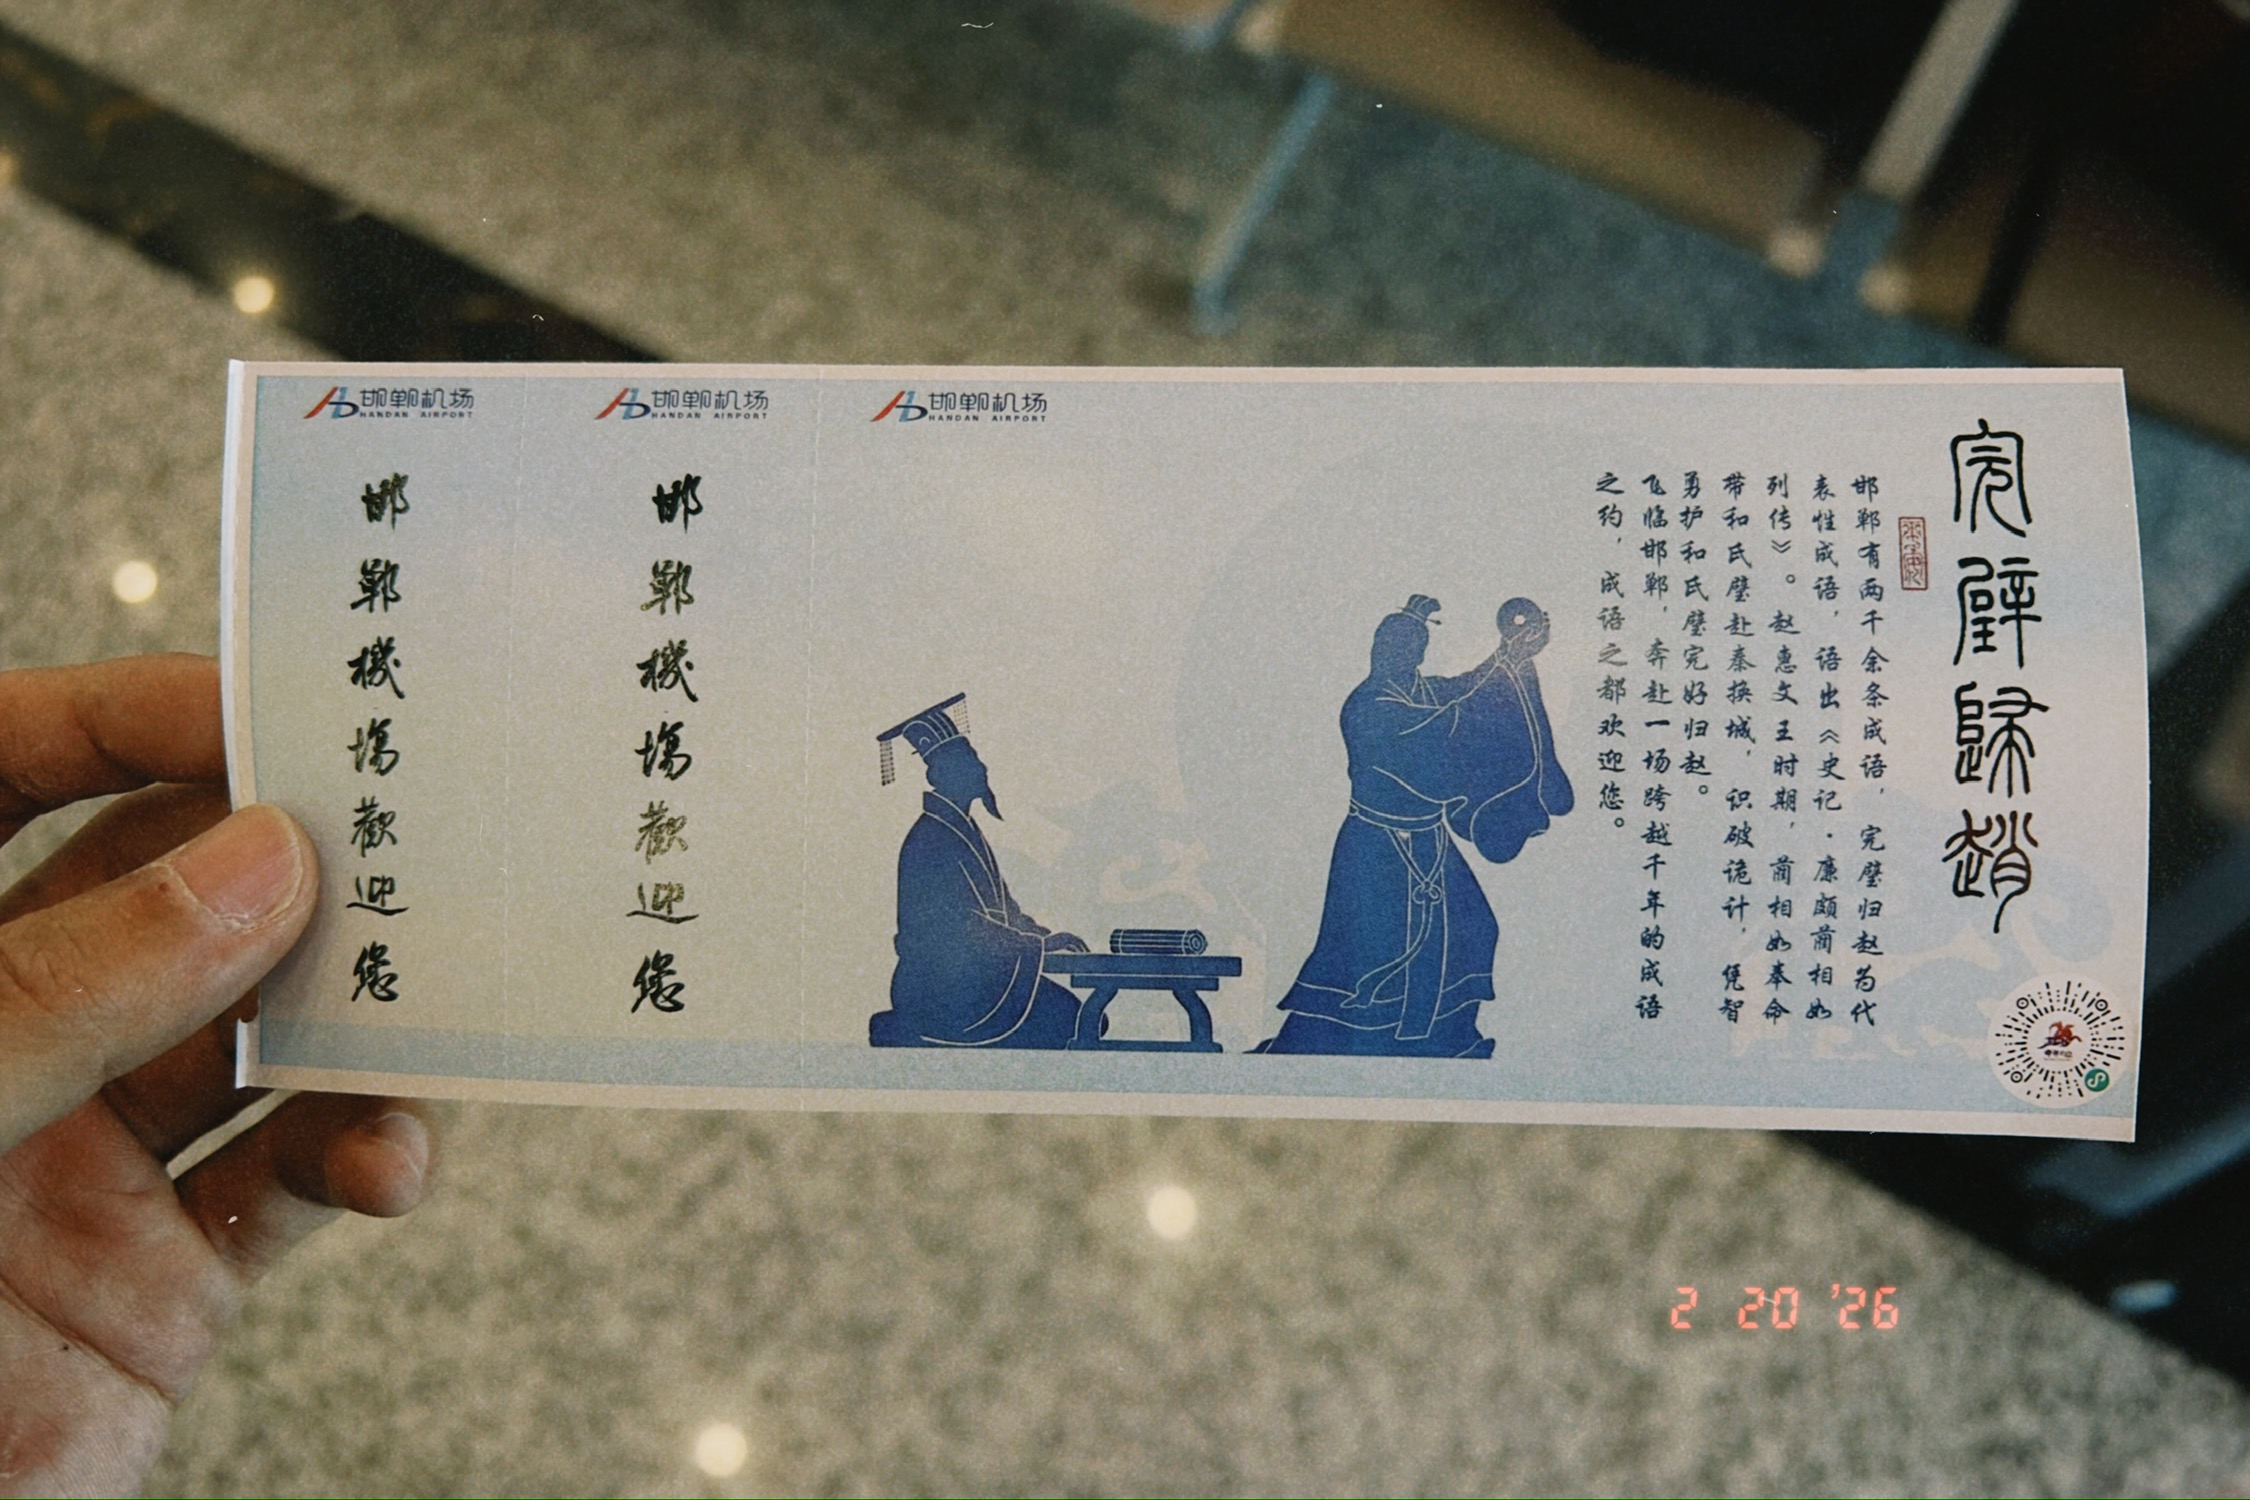 邯郸机场
HANDAN AIRPORT
邯郸机场
HANDAN AIRPORT
邯郸机场
HANDAN AIRPORT
完璧歸趙
邯郸有两千余条成语，完璧归赵为代
表性成语，语出《史记·廉颇蔺相如
列传》。赵惠文王时期，蔺相如奉命
带和氏璧赴秦换城，识破诡计，凭智
勇护和氏璧完好归赵。
飞临邯郸，奔赴一场跨越千年的成语
之约，成语之都欢迎您。
邯鄲機場歡迎您
邯鄲機場歡迎您
2 20 '26